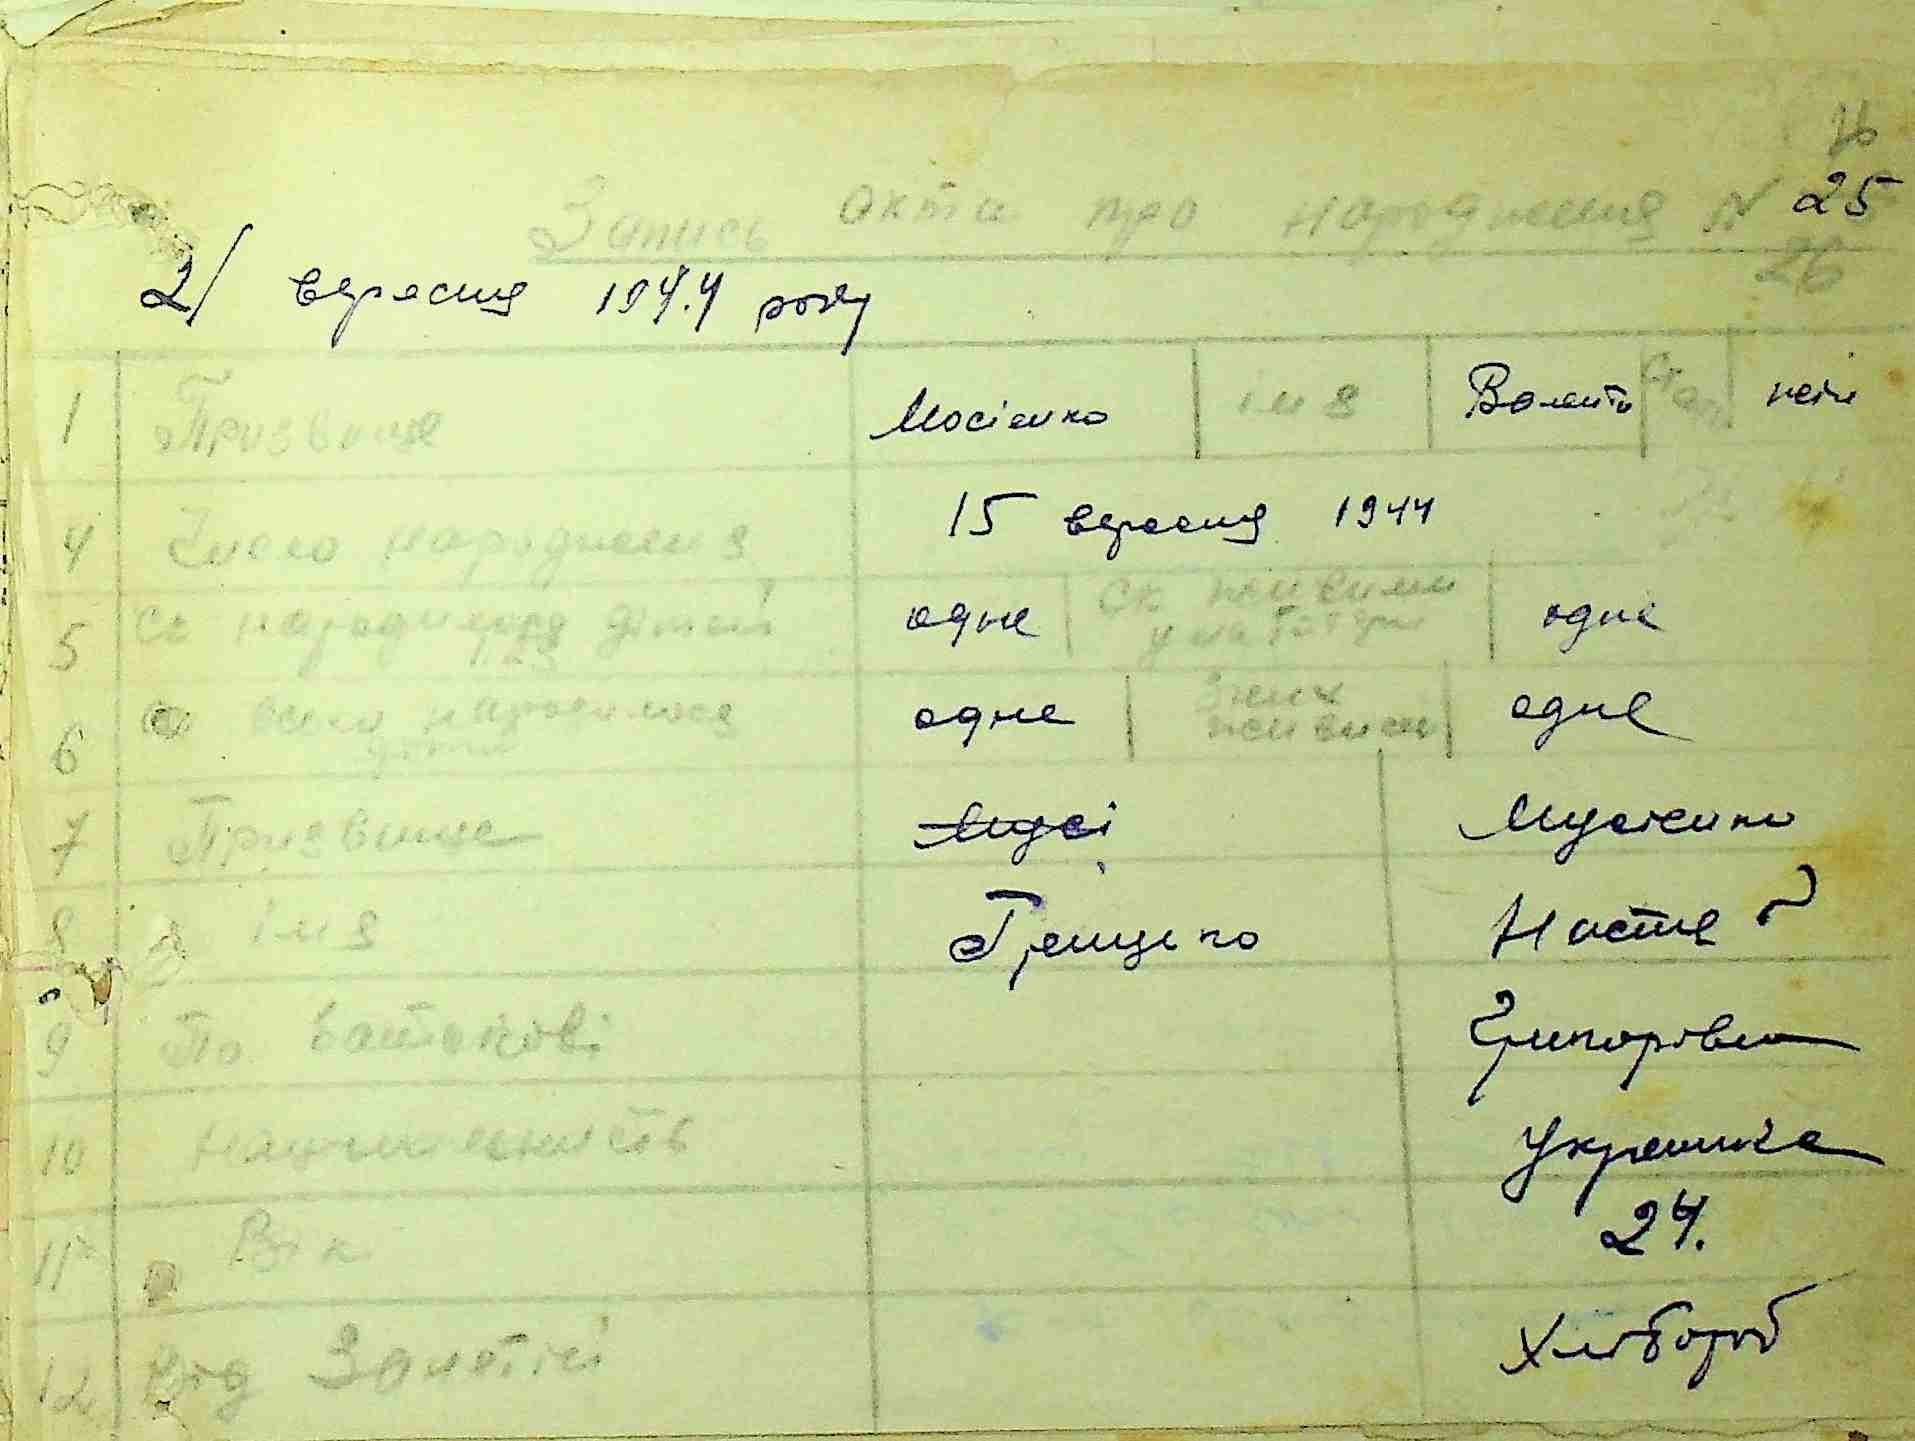 Запись акта про народження N 25
26
21 вересня 1944 року
1 Призвище Мосієнко імя Валенти стать жін
4 Число народження 15 вересня 1944
5 Ск народилося дітей одне Ск живими у матері одне
6 Ск всего народилося дітей одне Зних живими одне
7 Призвище Мусі Мусієнко
8 імя Грицько Настя
9 По батькові Григорівна
10 Национальність Українка
11 Вік 24.
12 Від Занятій Хлібороб